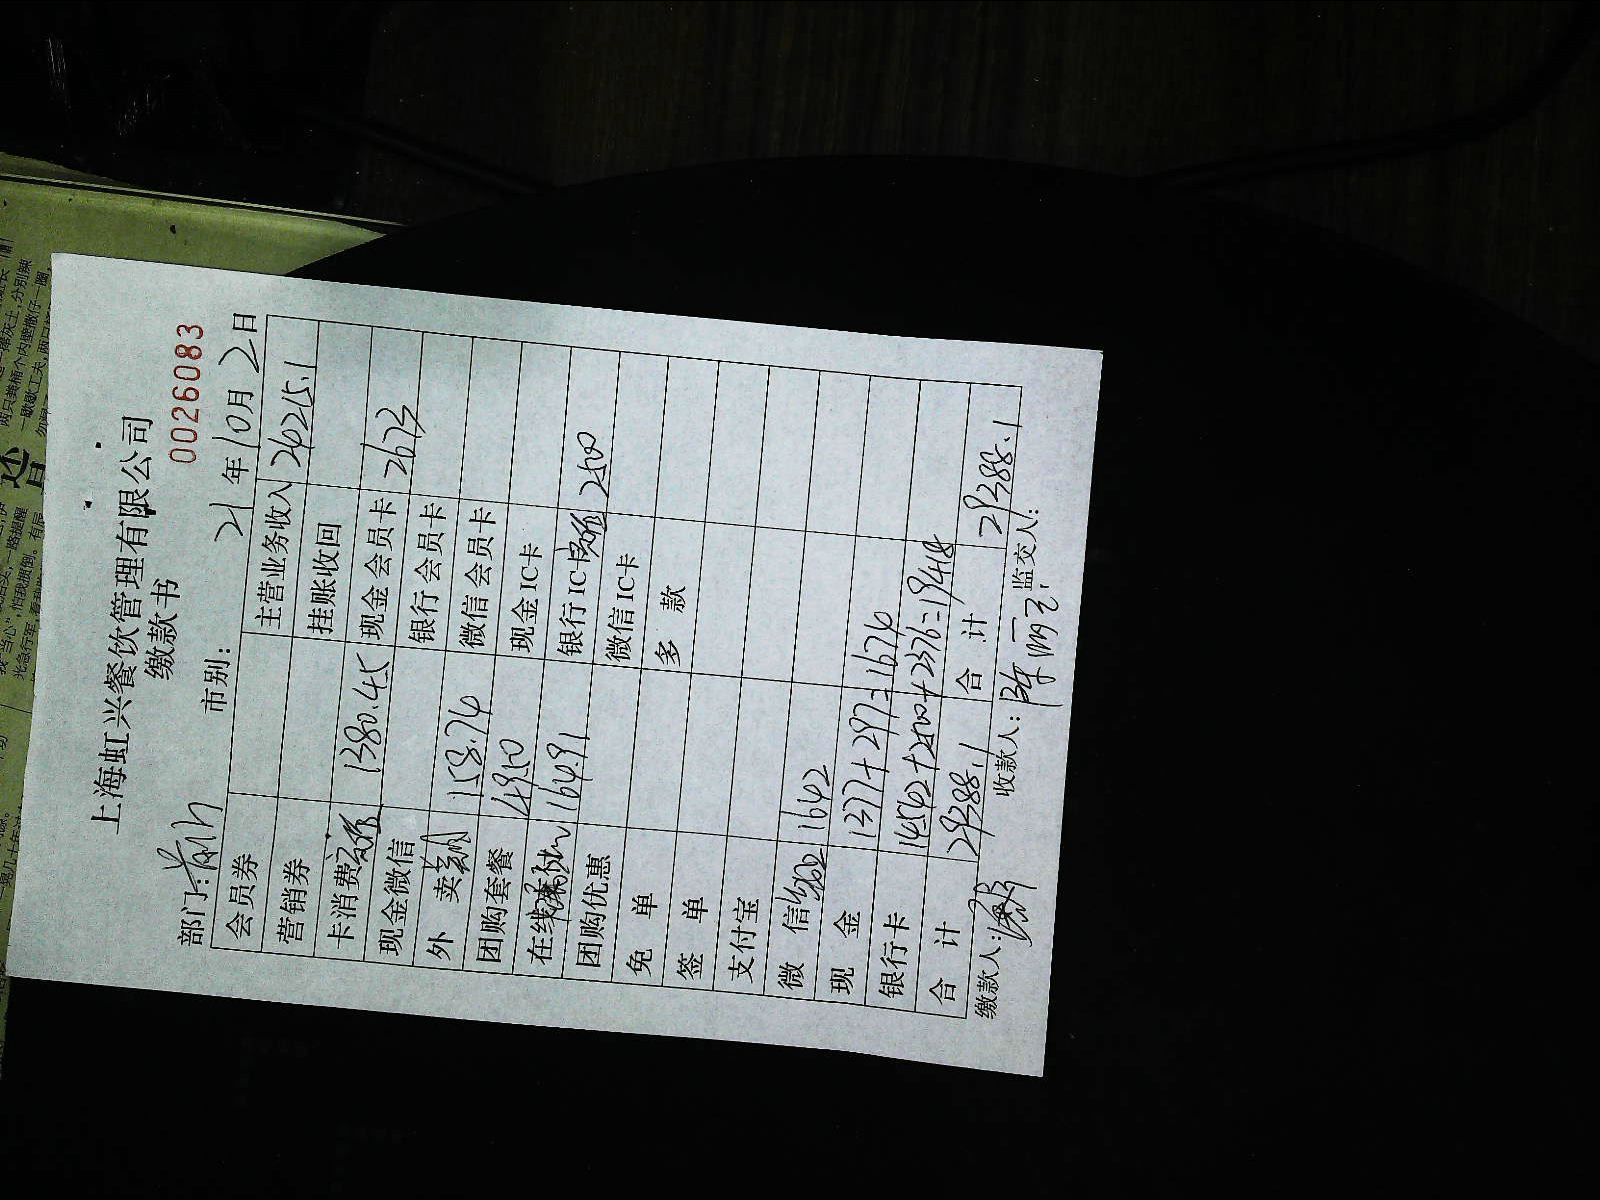 上海虹兴餐饮管理有限公司
缴款书
0026083
部门: 市别: 21年10月2日
会员券 主营业务收入 24215.1
营销券 挂账收回
卡消费 1380.45 现金会员卡 2673
现金微信 银行会员卡
外卖 158.74 微信会员卡
团购套餐 4950 现金IC卡
在线 164.91 银行IC卡 2500
团购优惠 微信IC卡
免单 多款
签单
支付宝
微信 1642
现金 1377+297=1674
银行卡 14542+2500+2376=19418
合计 29388.1 合计 29388.1
缴款人: 收款人: 监交人: